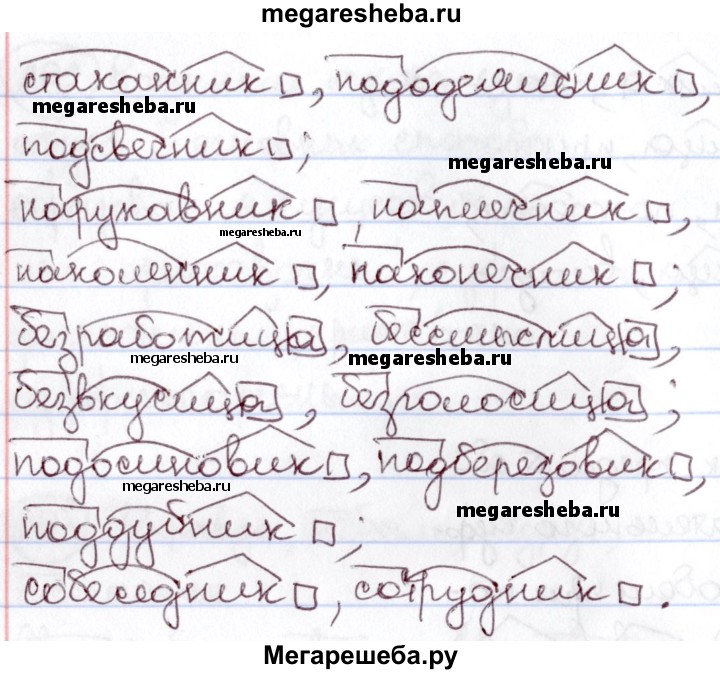 megaresheba.ru
стаканник, пододеяльник,
megaresheba.ru
подсвечник;
megaresheba.ru
нарукавник, наплечник,
megaresheba.ru
наколенник, наконечник;
безработица, бессмыслица,
megaresheba.ru
megaresheba.ru
безвкусица, безголосица;
подосиновик, подберезовик,
megaresheba.ru
megaresheba.ru
поддубник;
собеседник, сотрудник.
Мегарешеба.ру